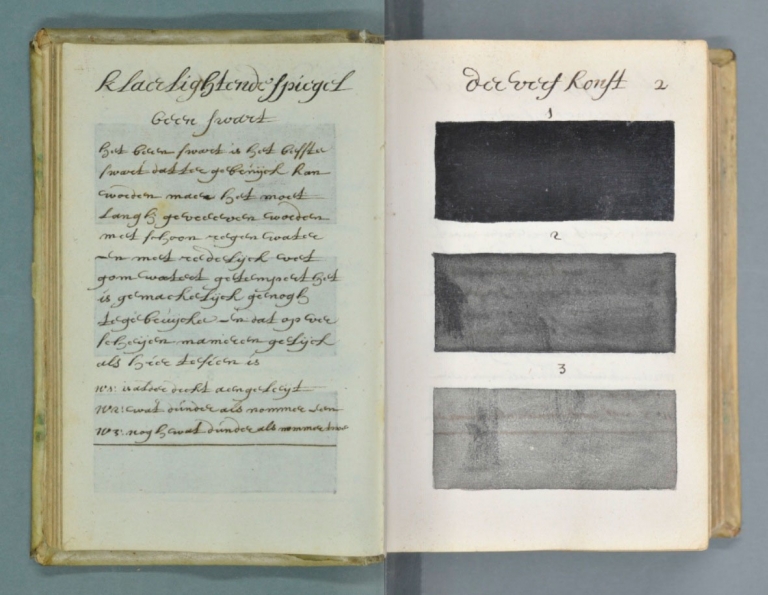 klaerlightende spiegel
been swart
het been swart is het beste
swart dat ter gebruyck kan
worden maer het moet
langh gevreeven worden
met schoon regen water
en met redelyck vet
gom watert getempert het
is gemackelyck genogh
te gebruycken en dat op ver
scheyen manieren gelyck
als hier te sien is
N1: is alder dickt aengeleyt
N2: wat dunder als nommer een
N3: nogh wat dunder als nommer twe
der verf konst 2
1
2
3